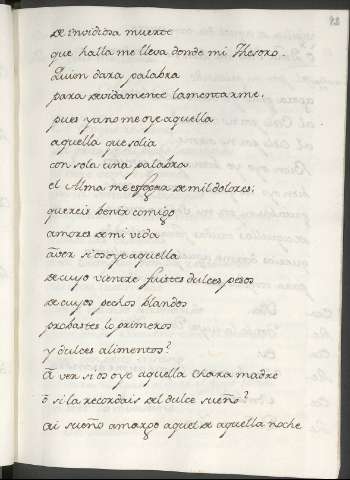 42
de envidiosa muerte
que halla me lleva donde mi Thesoro.
Quien dara palabra
para devidamente lamentarme,
pues ya no me oye aquella
aquella que solia
con sola una palabra
el Alma me esfogar de mil dolores,
quereis benir comigo
amores de mi vida
a ver si os oye aquella
de cuyo vientre fuistes dulces pesos
de cuyos pechos blandos
probastes lo primeros
y dulces alimentos?
A ver si os oye aquella chara madre
ò si la recordais del dulce sueño?
ai sueño amargo aquel de aquella noche